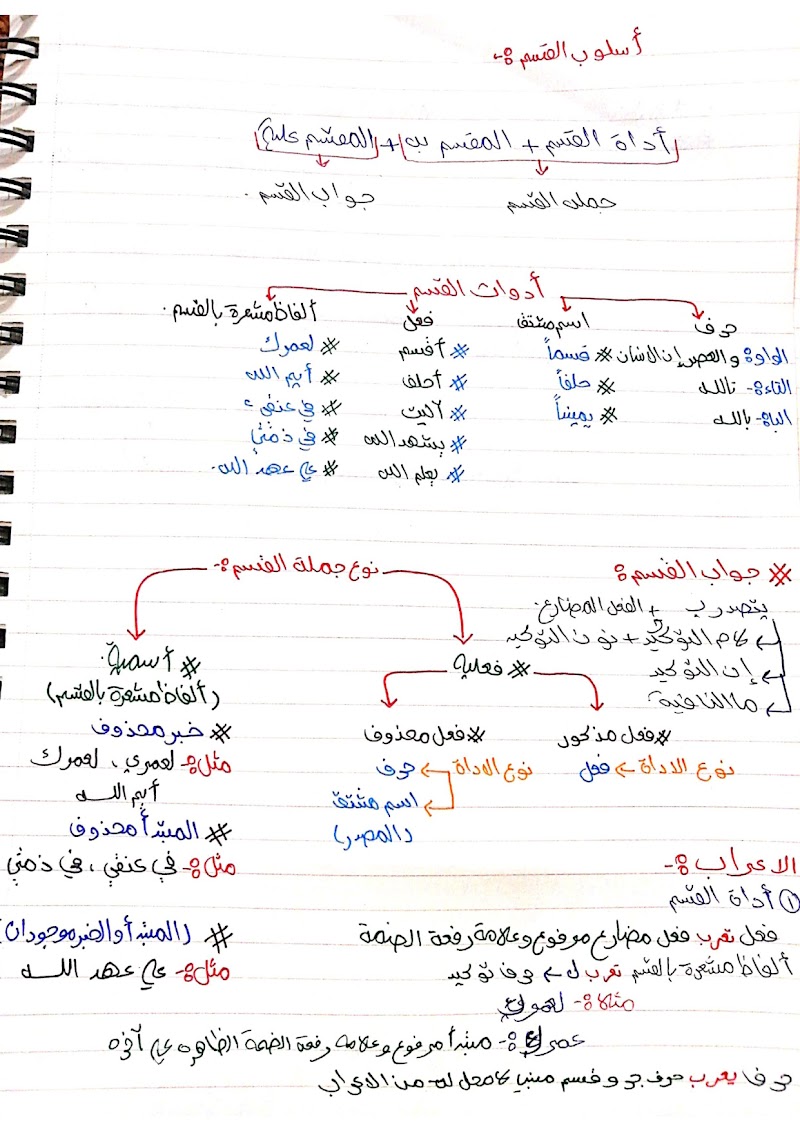 أسلوب القسم :-
أداة القسم + المقسم به + المقسم عليه
جملة القسم
جواب القسم .
أدوات القسم
حرف
اسم مشتق
فعل
ألفاظ مشعرة بالقسم .
الواو :- والعصر إن الانسان # قسماً # أقسم # لعمرك
التاء :- تالله # حلفاً # أحلف # أيم الله
الباء :- بالله # يميناً # آليت # في عنقي
# يشهد الله # في ذمتي
# يعلم الله # علي عهد الله .
# جواب القسم :
يتصدر ب + الفعل المضارع .
لام التوكيد + نون التوكيد
إن التوكيد
ما النافية
نوع جملة القسم :-
# فعلية
# أسمية .
(ألفاظ مشعرة بالقسم)
# فعل مذكور # فعل محذوف # خبر محذوف
نوع الاداة ← فعل
نوع الاداة ← حرف
اسم مشتق
(المصدر)
مثل :- لعمري ، لعمرك
أيم الله
# المبتدأ محذوف
مثل :- في عنقي ، في ذمتي
# (المبتدأ والخبر موجودان)
مثل :- علي عهد الله
الاعراب :-
① أداة القسم
فعل تعرب فعل مضارع مرفوع وعلامة رفعة الضمة
ألفاظ مشعرة بالقسم تعرب ل ← حرف توكيد
مثلا :- لعمرك
عمرك :- مبتدأ مرفوع وعلامه رفعة الضمة الظاهره علي آخره
حرف يعرب حرف جر وقسم مبني لا محل له من الاعراب